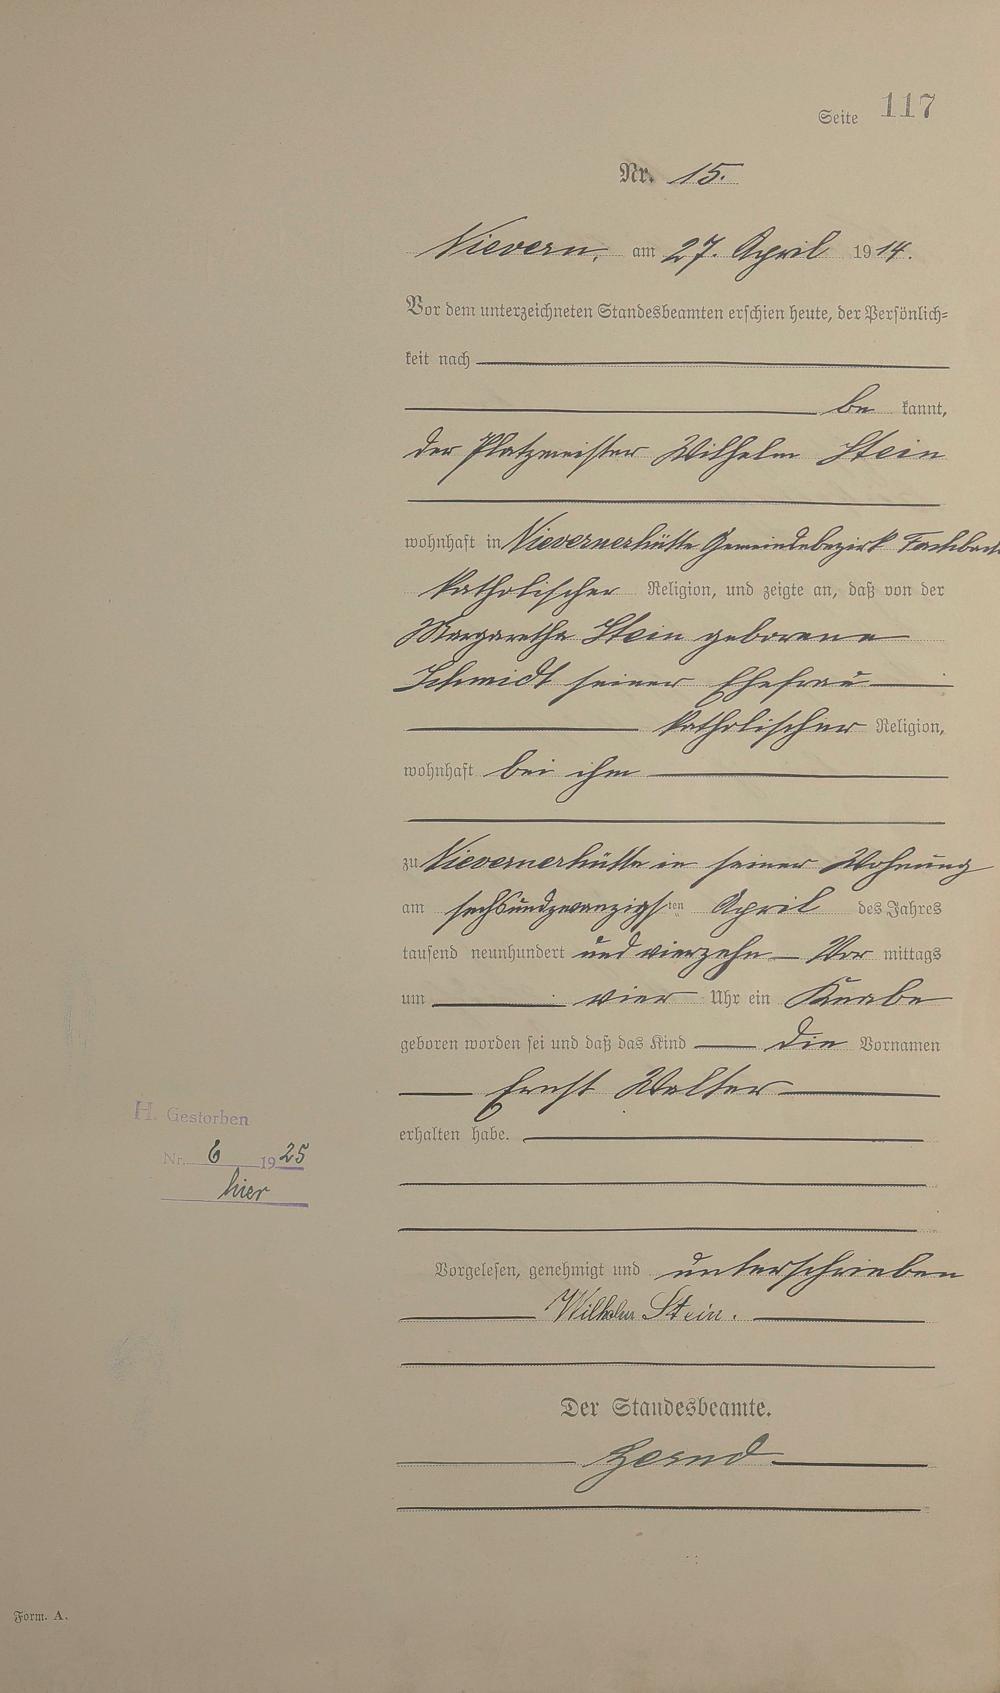 Seite 117
Nr. 15.
Nievern, am 27. April 1914.
Vor dem unterzeichneten Standesbeamten erschien heute, der Persönlich=
keit nach
be kannt,
der Platzmeister Wilhelm Stein
wohnhaft in Nievernerhütte Gemeindebezirk Fachbach
katholischer Religion, und zeigte an, daß von der
Margaretha Stein geborene
Schmidt seiner Ehefrau
katholischer Religion,
wohnhaft bei ihm
zu Nievernerhütte in seiner Wohnung
am sechsundzwanzigsten April des Jahres
tausend neunhundert und vierzehn Vor mittags
um vier Uhr ein Knabe
geboren worden sei und daß das Kind die Vornamen
Ernst Walter
erhalten habe.
H. Gestorben
Nr. 6 1925
hier
Vorgelesen, genehmigt und unterschrieben
Wilhelm Stein.
Der Standesbeamte.
Form. A.